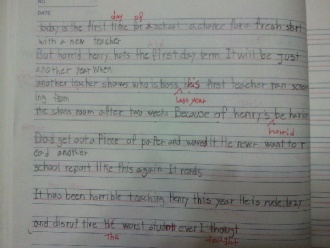 NO
DATE
day of
Today is the first time for a school a chance for a fresh start
with a new teacher
But horrid henry hats the first day term It will be just
another year when
another teacher shows who is boss his first teacher ran scream
ing from
last year
the stans room after two weeks Because of henry's be
horrid
Dad got out a Piece of paper and waved it He never want to r
ead another
school report like this again It reads
It has been horrible teaching Henry this year He is rude lazy
and disruptive He worst student ever I thougt
The taught